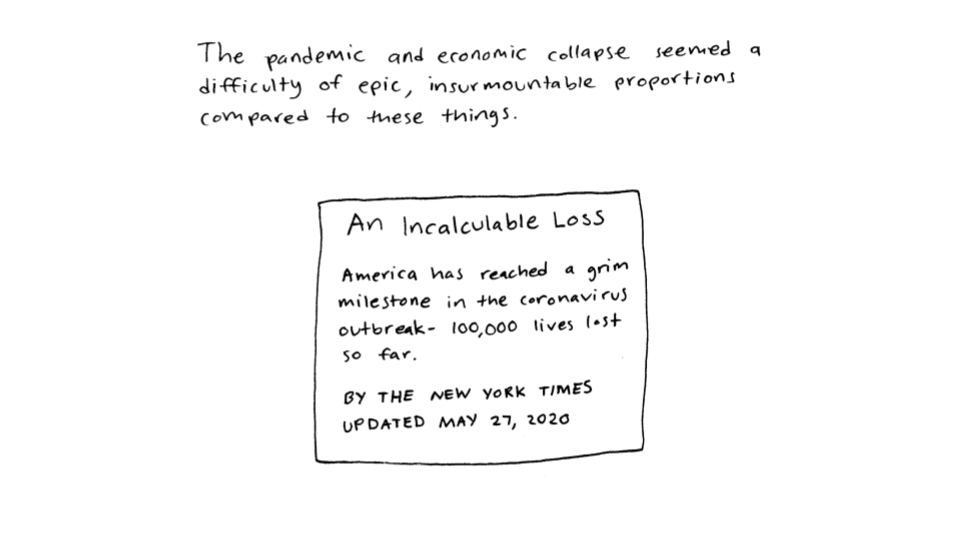 The pandemic and economic collapse seemed a
difficulty of epic, insurmountable proportions
compared to these things.
An Incalculable Loss
America has reached a grim
milestone in the coronavirus
outbreak- 100,000 lives lost
so far.
BY THE NEW YORK TIMES
UPDATED MAY 27, 2020